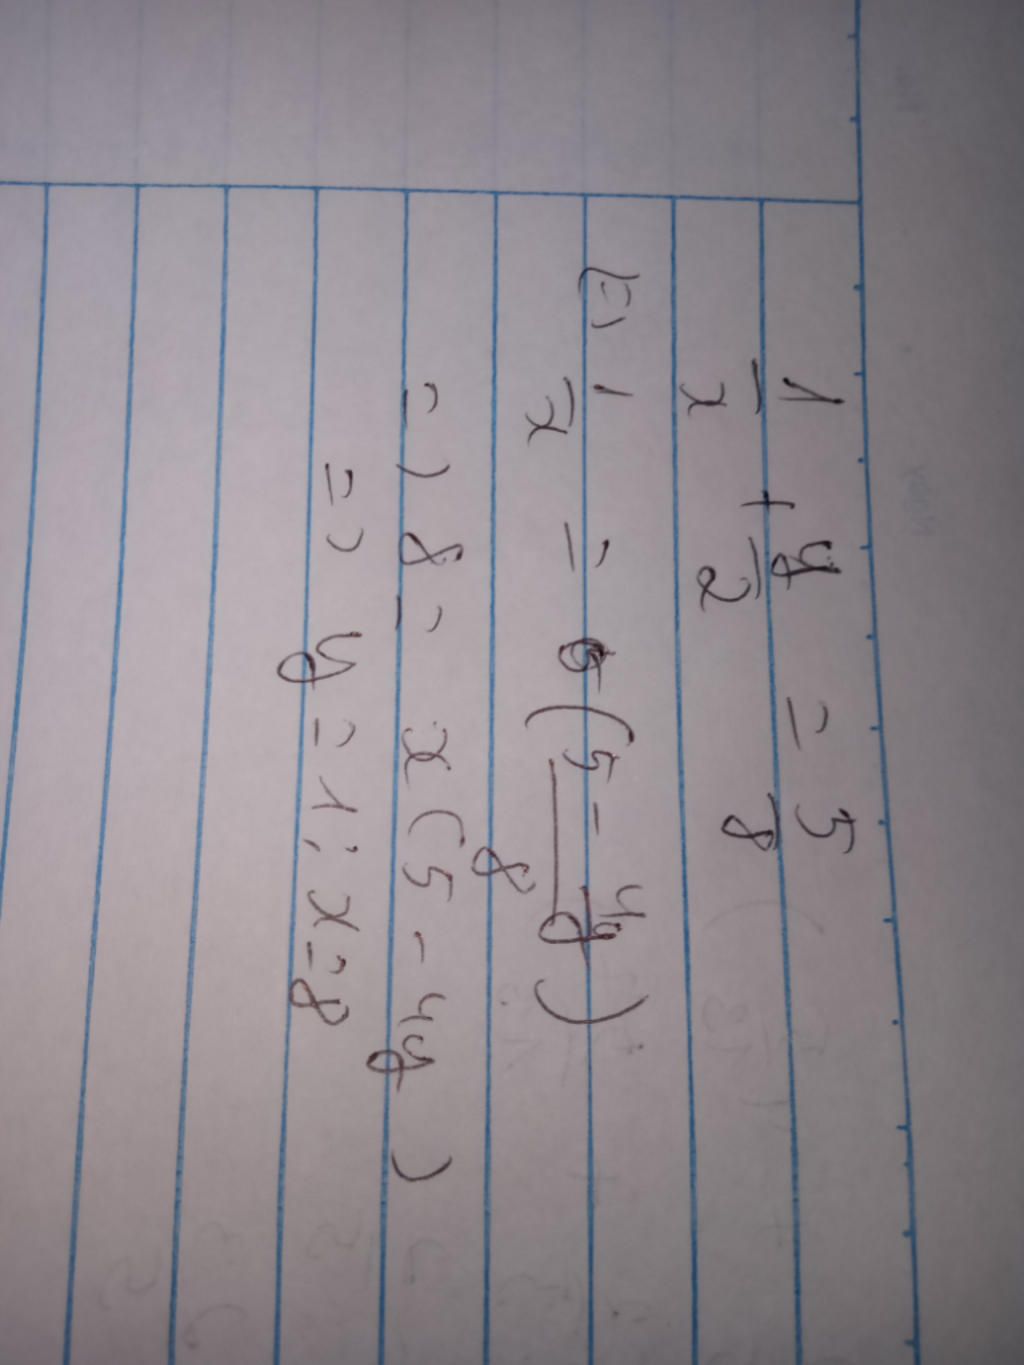 1/x + y/2 = 5/8
(=) 1/x = (5 - 4y)/8
=) 8 = x (5 - 4y)
=) y = 1; x = 8